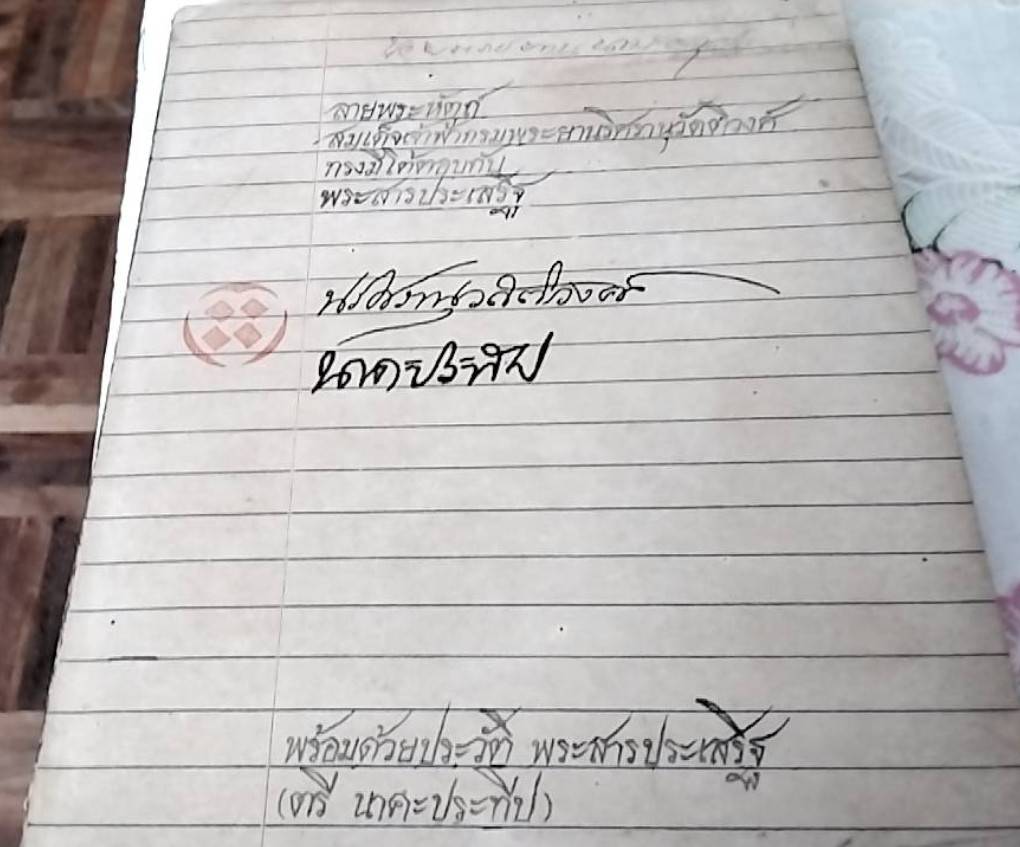 ลายพระหัตถ์
สมเด็จเจ้าฟ้ากรมพระยานริศรานุวัดติวงศ์
ทรงมีโต้ตอบกับ
พระสารประเสริฐ
นริศรานุวัดติวงศ์
นาคะประทีป
พร้อมด้วยประวัติ พระสารประเสริฐ
(ตรี นาคะประทีป)